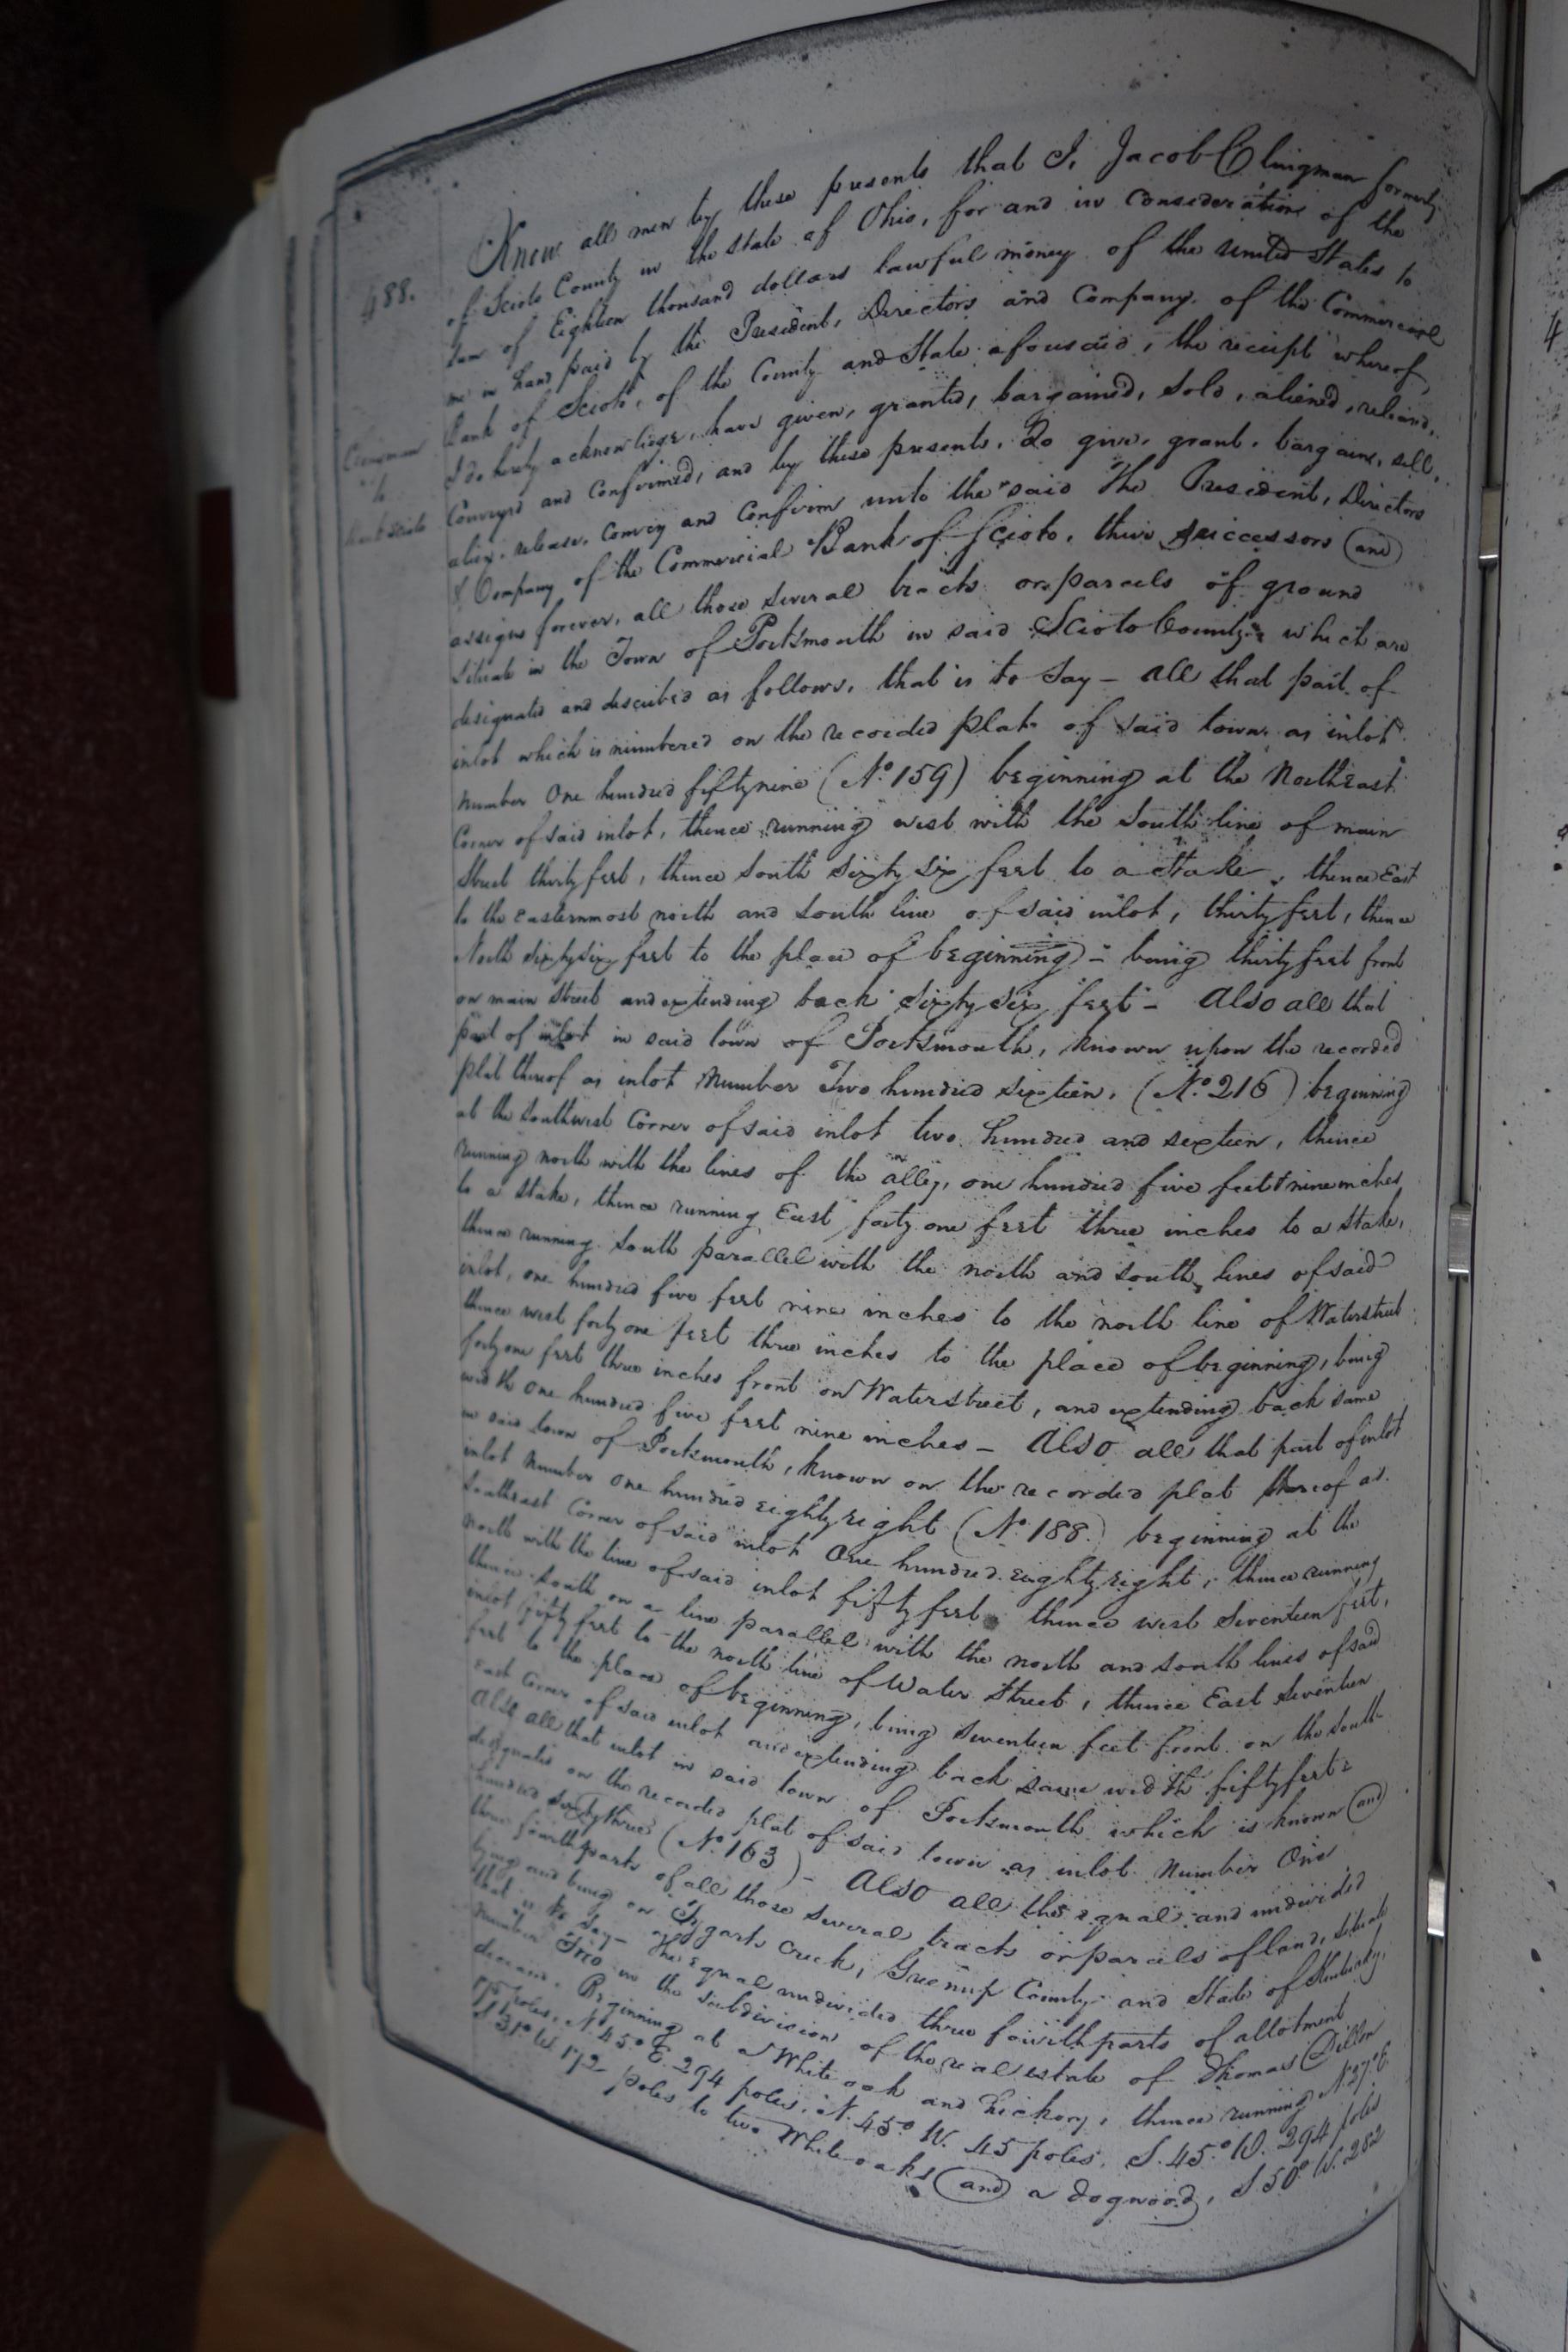 488.
Know all men by these presents that I, Jacob Clingman formerly
of Scioto County in the state of Ohio, for and in consideration of the
sum of Eighteen thousand dollars lawful money of the united States to
me in hand paid by the President, Directors and Company of the Commercial
Bank of Scioto, of the County and State aforesaid, the receipt whereof
I do hereby acknowledge, have given, granted, bargained, sold, aliened, released,
Clingman
to
Bank Scioto
Conveyed and Confirmed, and by these presents, Do give, grant, bargain, sell,
alien, release, Convey and Confirm unto the said The President, Directors
& Company of the Commercial Bank of Scioto, their successors and
assigns forever, all those several tracts or parcels of ground
Situate in the Town of Portsmouth in said Scioto County which are
designated and described as follows, that is to Say - all that part of
inlot which is numbered on the recorded plat of said town as inlot
number One hundred fiftynine (No. 159) beginning at the Northeast
Corner of said inlot, thence running west with the South line of main
Street thirty feet, thence South Sixty Six feet to a Stake, thence East
to the easternmost north and South line of said inlot, thirty feet, thence
North Sixtysix feet to the place of beginning - being thirty feet front
on main Street and extending back Sixty Six feet - Also all that
part of inlot in said town of Portsmouth, known upon the recorded
plat thereof as inlot Number Two hundred sixteen, (No. 216) beginning
at the Southwest Corner of said inlot two hundred and sixteen, thence
running north with the lines of the alley, one hundred five feet & nine inches
to a Stake, thence running East forty one feet three inches to a Stake,
thence running South parallel with the north and south lines of said
inlot, one hundred five feet nine inches to the north line of Waterstreet
thence west forty one feet three inches to the place of beginning, being
forty one feet three inches front on Waterstreet, and extending back same
width one hundred five feet nine inches - Also all that part of inlot
in said town of Portsmouth, known on the recorded plat thereof as
inlot Number One hundred eighty eight (No. 188.) beginning at the
Southeast Corner of said inlot One hundred eighty eight, thence running
North with the line of said inlot fifty feet thence west Seventeen feet,
thence south on a line parallel with the north and South lines of said
inlot fifty feet to the north line of Water Street, thence East Seventeen
feet to the place of beginning, being Seventeen feet front on the South
East Corner of said inlot and extending back same width fifty feet
Also all that inlot in said town of Portsmouth which is known and
designated on the recorded plat of said town as inlot Number One
hundred sixtythree (No. 163) - Also all the equal and undivided
three fourth parts of all those Several tracts or parcels of land, situate
lying and being on Tygarts Creek, Greenup County and State of Kentucky,
that is to Say - The equal undivided three fourth parts of allotment
number Two in the Subdivision of the real estate of Thomas Dillon
deceased. Beginning at a White oak and hickory, thence running N 27° E.
175 poles, N. 45° E. 294 poles, N. 45° W. 45 poles, S. 45° W. 294 poles
S 31° W. 172 poles to two White oaks and a dogwood, S 50° W. 282